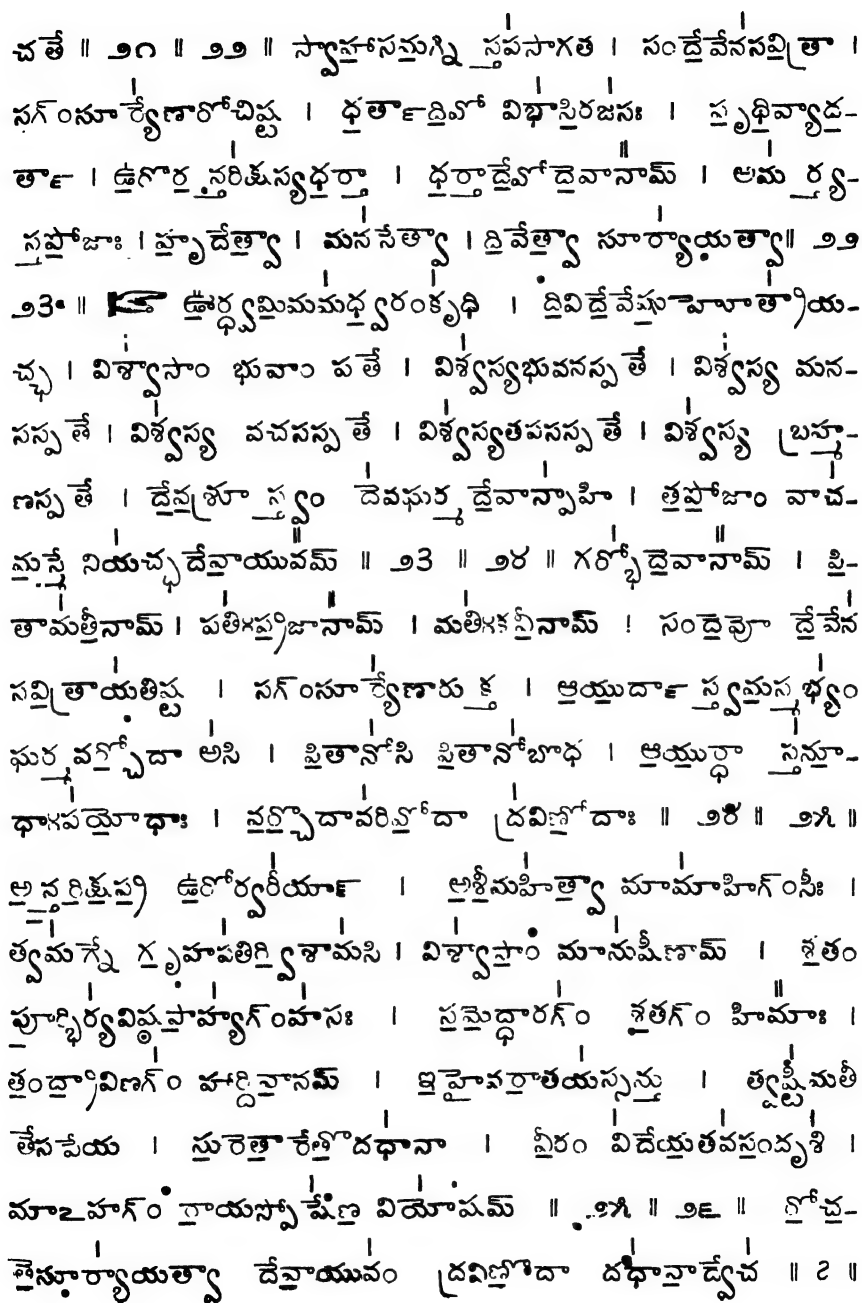 చతే ॥ ౨౧ ॥ ౨౨ ॥ స్వాహాసమగ్ని స్తపసాగత । సందేవేనసవిత్రా ।
సగ్ంసూర్యేణారోచిష్ట । ధర్తాదివో విభాసిరజసః । పృథివ్యాధ-
ర్తా । ఉరోరన్తరిక్షస్యధర్తా । ధర్తాదేవోదేవానామ్ । అమర్త్య-
స్తపోజాః । హృదేత్వా । మనసేత్వా । దివేత్వా సూర్యాయత్వా॥ ౨౨
౨౩ ॥ ☞ ఊర్ధ్వమిమమధ్వరంకృధి । దివిదేవేషుహోత్రాయ-
చ్ఛ । విశ్వాసాం భువాం పతే । విశ్వస్యభువనస్పతే । విశ్వస్య మన-
సస్పతే । విశ్వస్య వచసస్పతే । విశ్వస్యతపసస్పతే । విశ్వస్య బ్రహ్మ-
ణస్పతే । దేవశ్రూస్త్వం దేవఘర్మ దేవాన్పాహి । తపోజాం వాచ-
మస్మే నియచ్ఛదేవాయువమ్ ॥ ౨౩ ॥ ౨౪ ॥ గర్భోదేవానామ్ । పి-
తామతీనామ్ । పతిఃప్రజానామ్ । మతిఃకవీనామ్ । సందేవో దేవేన
సవిత్రాయతిష్ట । సగ్ంసూర్యేణారుక్త । ఆయుర్దాస్త్వమస్మభ్యం
ఘర్మవర్చోదా అసి । పితానోసి పితానోబోధ । ఆయుర్ధాస్తనూ-
ధాఃపయోధాః । వర్చోదావరివోదా ద్రవిణోదాః ॥ ౨౪ ॥ ౨౫ ॥
అన్తరిక్షప్ర ఉరోర్వరీయా౯ । అశీమహిత్వా మామాహిగ్ంసీః ।
త్వమగ్నే గృహపతిర్విశామసి । విశ్వాసాం మానుషీణామ్ । శతం
పూర్భిర్యవిష్ఠపాహ్యగ్ంహసః । సమేద్ధారగ్ం శతగ్ం హిమాః ।
తంద్రావిణగ్ం హార్దివానమ్ । ఇహైవరాతయస్సన్తు । త్వష్టీమతీ
తేసపేయ । సురేతారేతోదధానా । వీరం విదేయతవసందృశి ।
మాఽహగ్ం రాయస్పోషేణ వియోషమ్ ॥ ౨౫ ॥ ౨౬ ॥ రోచ-
తేసూర్యాయత్వా దేవాయువం ద్రవిణోదా దధానాద్వేచ ॥ ౭ ॥